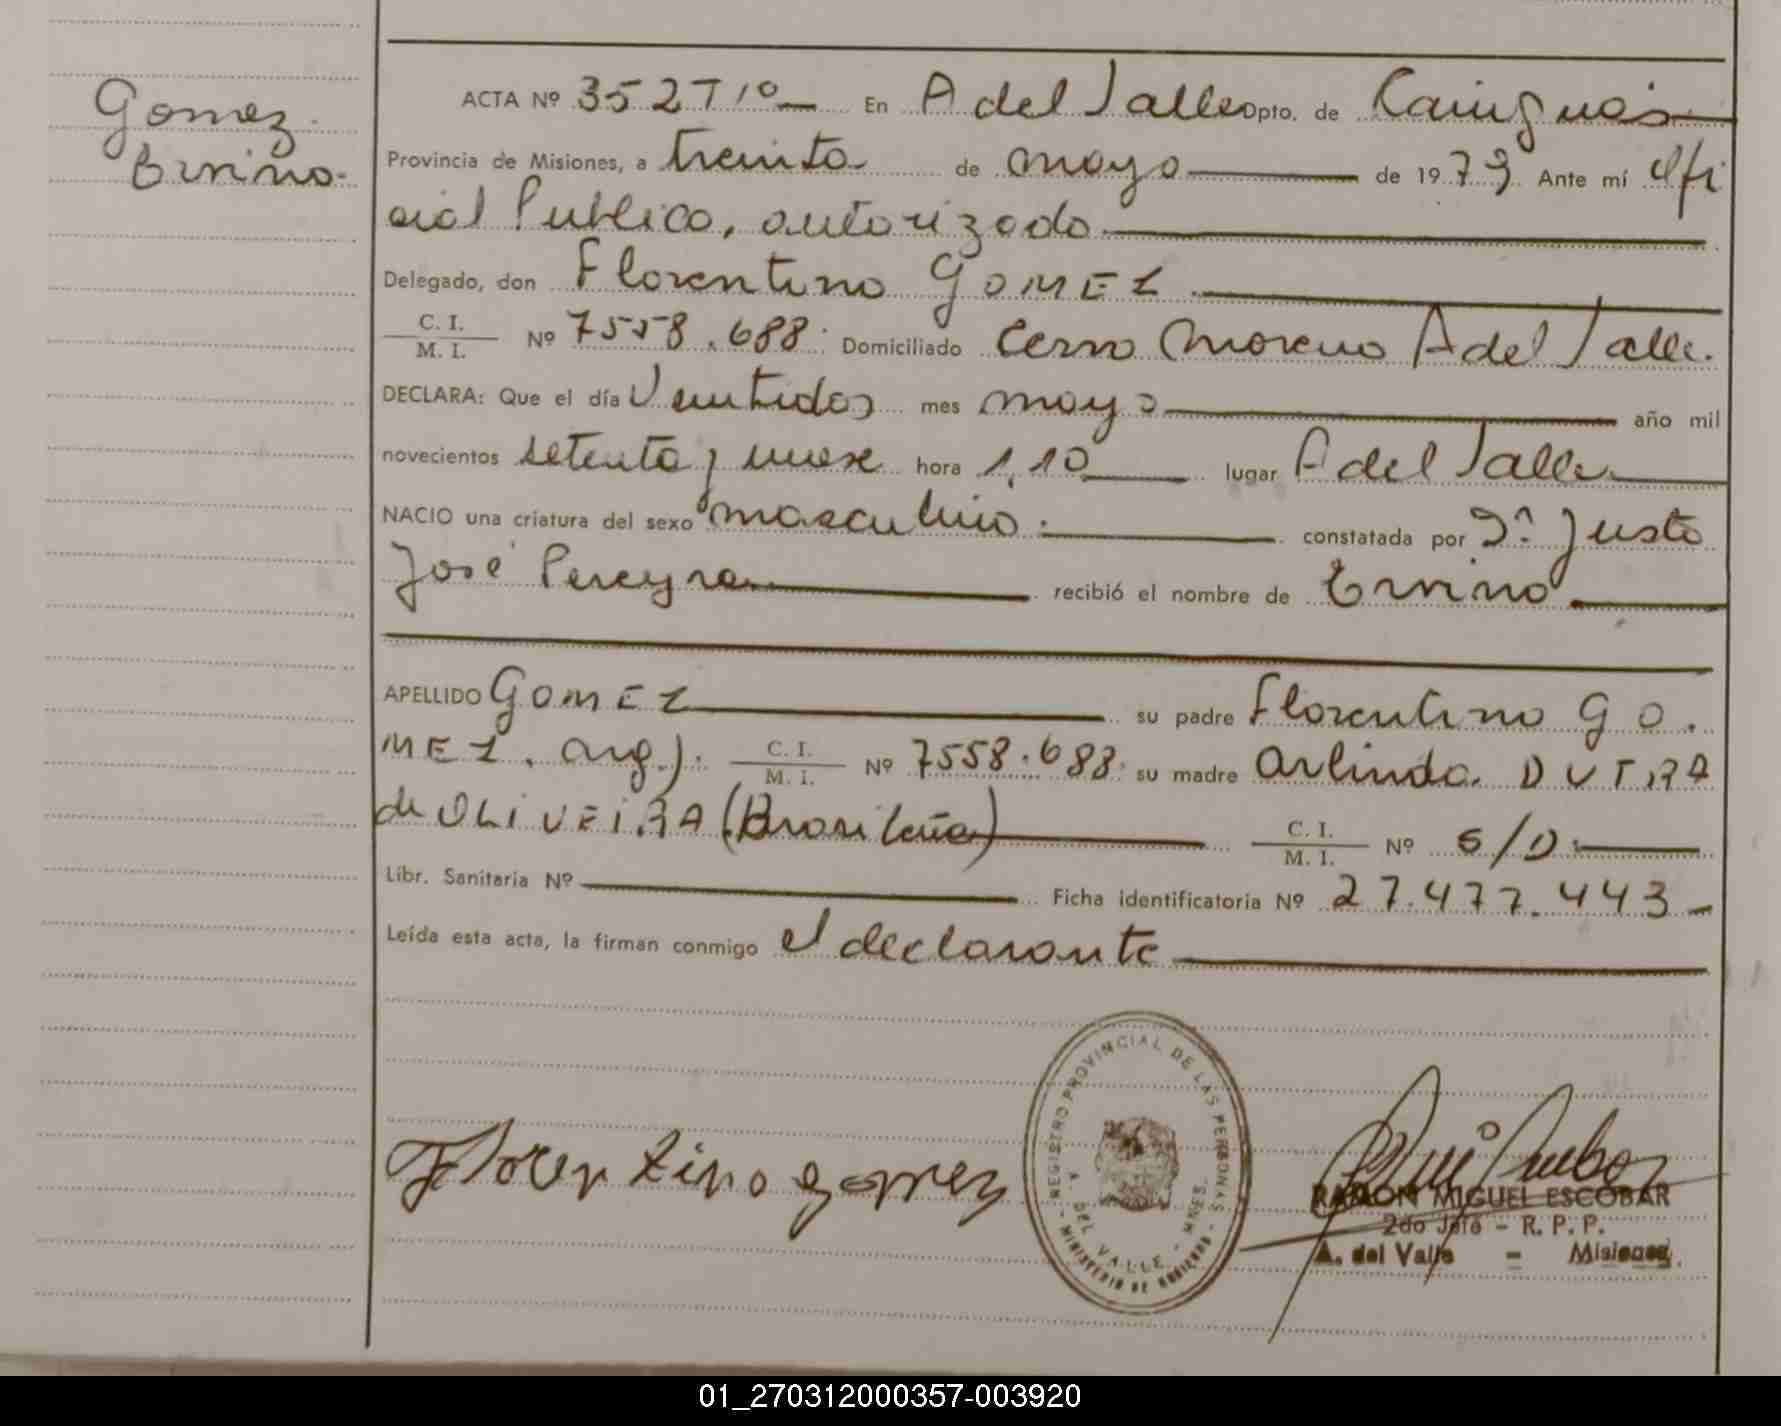 Gomez
Ernino.
ACTA Nº 352 T1º En A del Valle Dpto. de Cainguás
Provincia de Misiones, a treinta de mayo de 1979 Ante mí Ofi
cial Publico, autorizado
Delegado, don Florentino GOMEZ
C. I.
M. I. Nº 7558.688. Domiciliado Cerro Moreno A del Valle.
DECLARA: Que el día Veintidos mes mayo año mil
novecientos setenta y nueve hora 1,10 lugar A del Valle
NACIO una criatura del sexo masculino. constatada por Justo
José Pereyra recibió el nombre de Ernino
APELLIDO GOMEZ su padre Florentino GO.
MEZ. arg.). C. I.
M. I. Nº 7558.688. su madre Arlinda DUTRA
de OLIVEIRA (Brasileña) C. I.
M. I. Nº S/D.
Libr. Sanitaria Nº Ficha identificatoria Nº 27.477.443
Leída esta acta, la firman conmigo el declarante
REGISTRO PROVINCIAL DE LAS PERSONAS
A. DEL VALLE - MNES.
MINISTERIO DE GOBIERNO
Florentino gomez
RAMON MIGUEL ESCOBAR
2do Jefe - R. P. P.
A. del Valle - Misiones.
01_270312000357-003920